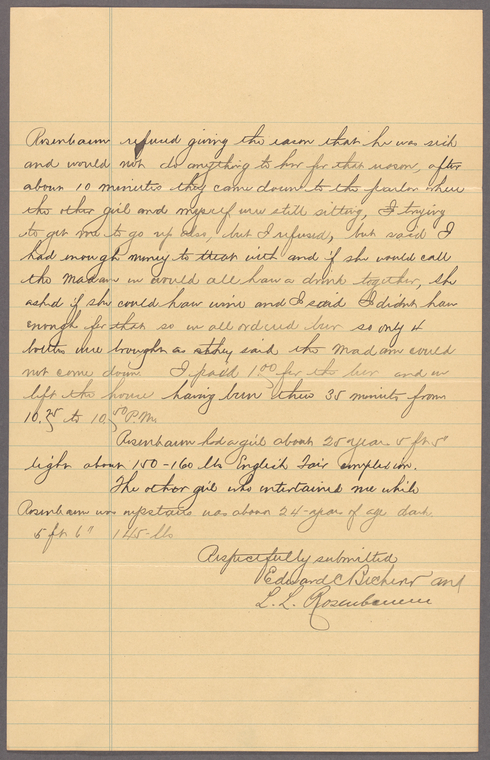 Rosenbaum refused giving the reason that he was sick
and would not do anything to her for that reason, after
about 10 minutes they came down to the parlor where
the other girl and myself were still sitting, I trying
to get me to go up also, but I refused, but said I
had enough money to treat with and if she would call
the Madam we would all have a drink together, she
asked if she could have wine and I said I didnt have
enough for that so we all ordered beer so only 4
bottles were brought as they said the Madam could
not come down I paid 1.00 for the beer and we
left the house having been there 35 minutes from
10. to 10 P.M.
Rosenbaum had a girl about 25 years 5 ft 5"
light about 150-160 lbs English Fair complexion.
The other girl who entertained me while
Rosenbaum was upstairs was about 24-years of age dark
5 ft 6" 145-lbs
Respectfully submitted
Edward C and
L. L. Rosenbaum